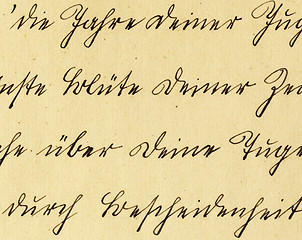 die Jahre Deiner Jug
nste Blüte Deiner Zei
he über Deine Tuge
durch Bescheidenheit